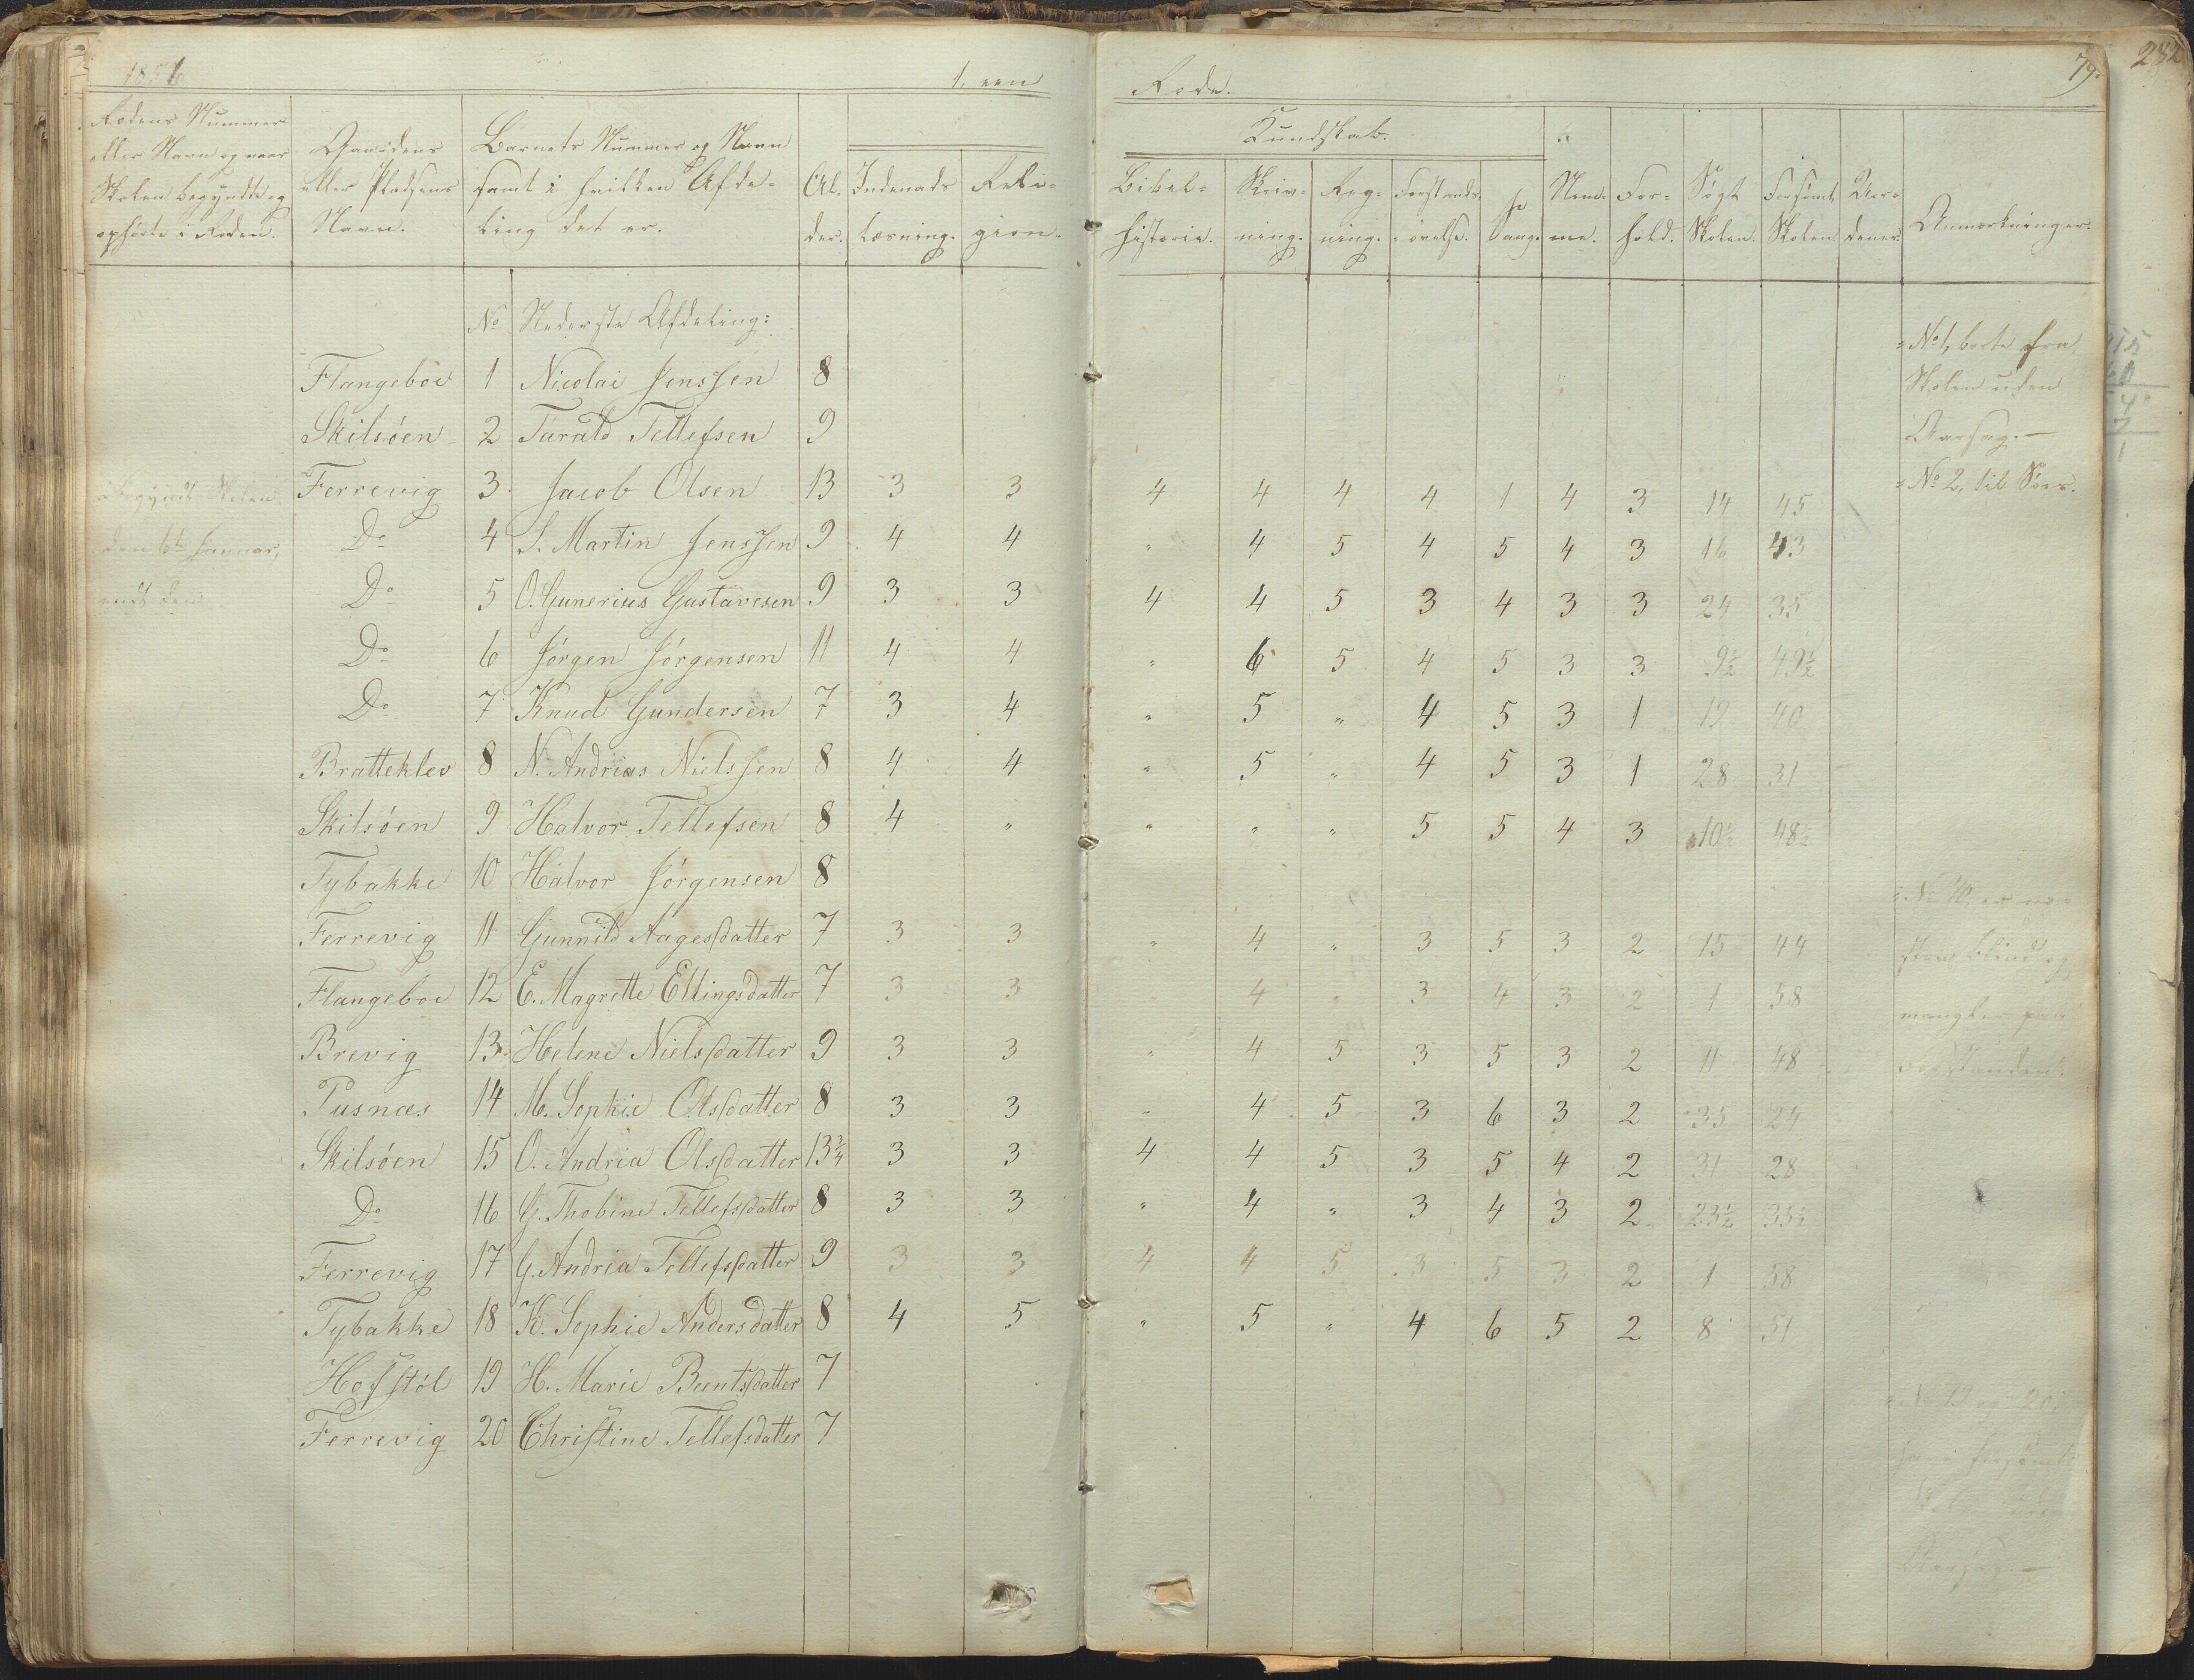 1856
1. een
Rode.
79.
232
Rodens Nummer
eller Navn og naar
Skolen begyndte og
ophørte i Roden.
Gaardens
eller Pladsens
Navn.
Barnets Nummer og Navn
samt i hvilken Afde-
ling det er.
Al-
der.
Kundskab.
Indenads
Læsning.
Reli-
gion.
Bibel-
historie.
Skriv-
ning.
Reg-
ning.
Forstands-
øvelse.
Sang.
Nem-
me.
For-
hold.
Søgt
Skolen.
Forsømt
Skolen
Aar-
Anmærkninger.
No Nederste Afdeling:
Flangeboe 1 Nicolai Jenssen 8
Skilsöen 2 Tarald Tellefsen 9
Ferrevig 3 Jacob Olsen 13 3 3 4 4 4 4 1 4 3 14 45
Do 4 S. Martin Jenssen 9 4 4 " 4 5 4 5 4 3 16 43
Do 5 O. Gunerius Gustavesen 9 3 3 4 4 5 3 4 3 3 24 35
Do 6 Jörgen Jörgensen 11 4 4 " 6 5 4 5 3 3 9½ 49½
Do 7 Knud Gundersen 7 3 4 " 5 " 4 5 3 1 19 40
Bratteklev 8 N. Andrias Nielssen 8 4 4 " 5 " 4 5 3 1 28 31
Skilsöen 9 Halvor Tellefsen 8 4 " " " " 5 5 4 3 10½ 48½
Tybakke 10 Halvor Jörgensen 8
Ferrevig 11 Gunnild Aagesdatter 7 3 3 " 4 " 3 5 3 2 15 44
Flangeboe 12 E. Magrette Ellingsdatter 7 3 3 " 4 " 3 4 3 2 1 58
Brevig 13 Helene Nielsdatter 9 3 3 " 4 5 3 5 3 2 11 48
Pusnæs 14 M. Sophie Olsdatter 8 3 3 " 4 5 3 6 3 2 35 24
Skilsöen 15 O. Andria Olsdatter 13¾ 3 3 4 4 5 3 5 4 2 31 28
Do 16 G. Thobine Tellefsdatter 8 3 3 " 4 " 3 4 3 2 23½ 35½
Ferrevig 17 G. Andria Tellefsdatter 9 3 3 4 4 5 3 5 3 2 1 58
Tybakke 18 K. Sophie Andersdatter 8 4 5 " 5 " 4 6 5 2 8 51
Hofstöl 19 H. Marie Beentsdatter 7
Ferrevig 20 Christine Tellefsdatter 7
Begyndt Skolen
den 6te Januar,
endt den
No 1, borte fra
Skolen uden
Aarsag.
No 2, til Söes.
No 10, er næ-
sten blind og
mangler paa
Forstanden.
No 19 og 20,
have forsömt
Skolen uden
Aarsag.